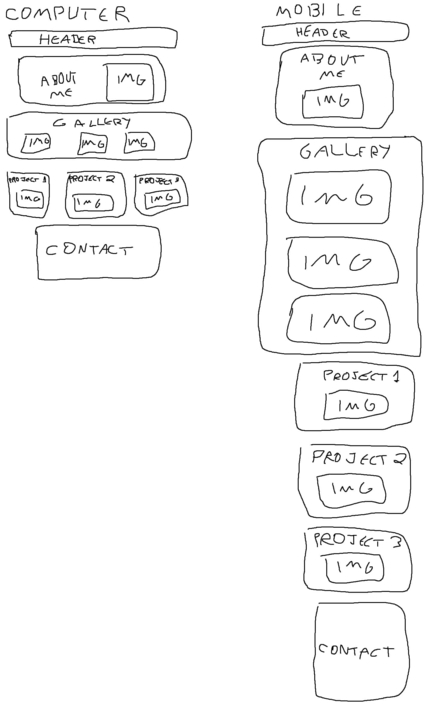 COMPUTER
HEADER
ABOUT
ME
IMG
GALLERY
IMG IMG IMG
PROJECT 1 PROJECT 2 PROJECT 3
IMG IMG IMG
CONTACT
MOBILE
HEADER
ABOUT
ME
IMG
GALLERY
IMG
IMG
IMG
PROJECT 1
IMG
PROJECT 2
IMG
PROJECT 3
IMG
CONTACT